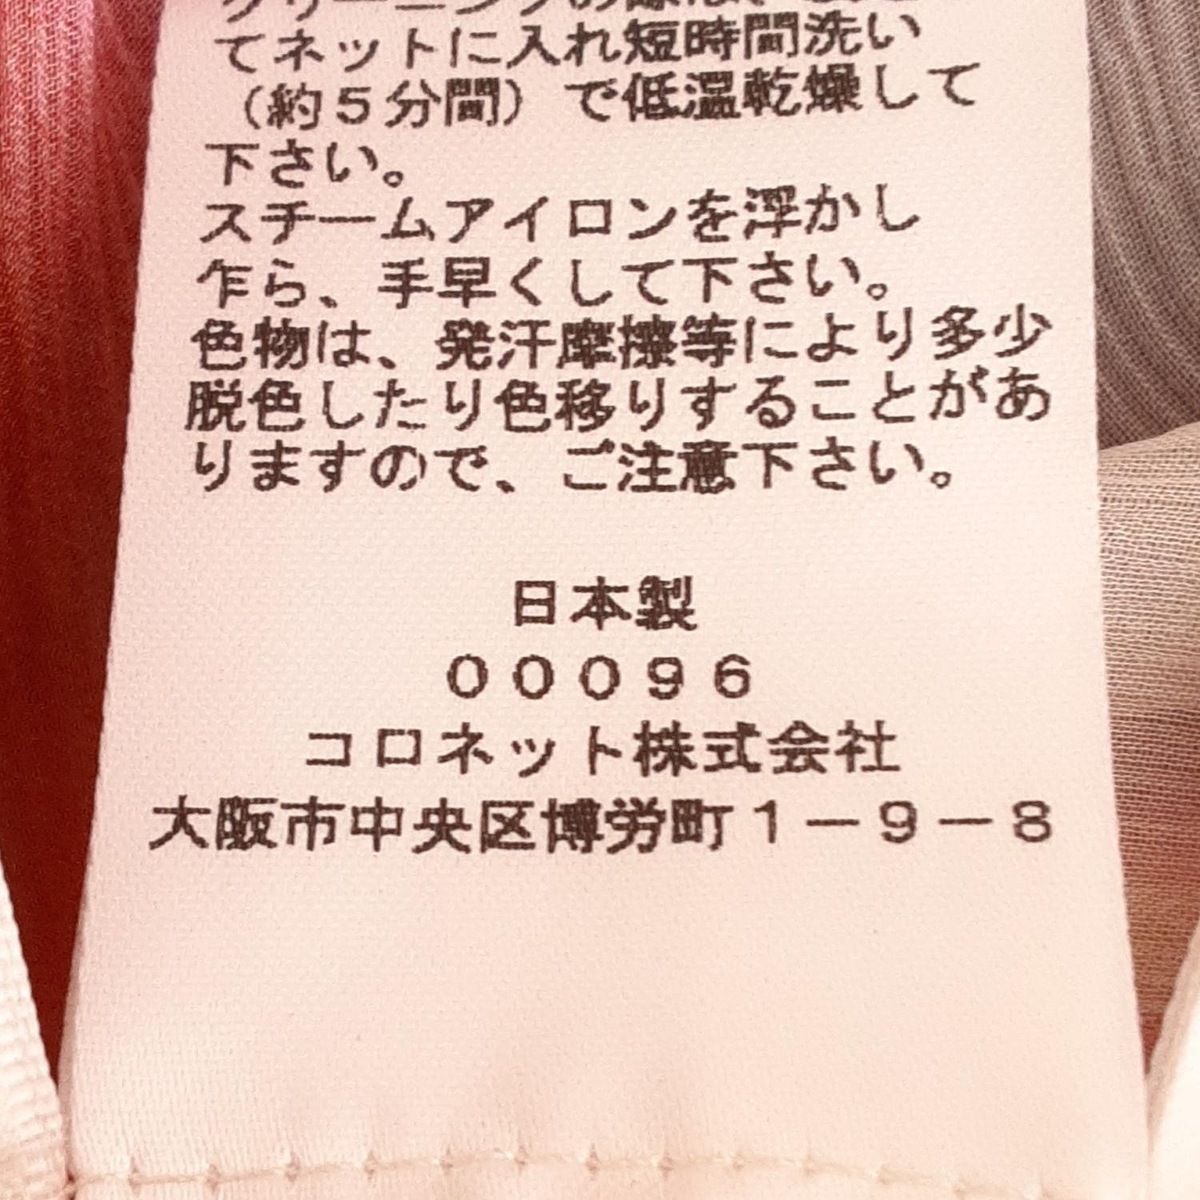 クリーニングの際は、
てネットに入れ短時間洗い
（約５分間）で低温乾燥して
下さい。
スチームアイロンを浮かし
乍ら、手早くして下さい。
色物は、発汗摩擦等により多少
脱色したり色移りすることがあ
りますので、ご注意下さい。
日本製
０００９６
コロネット株式会社
大阪市中央区博労町１－９－８